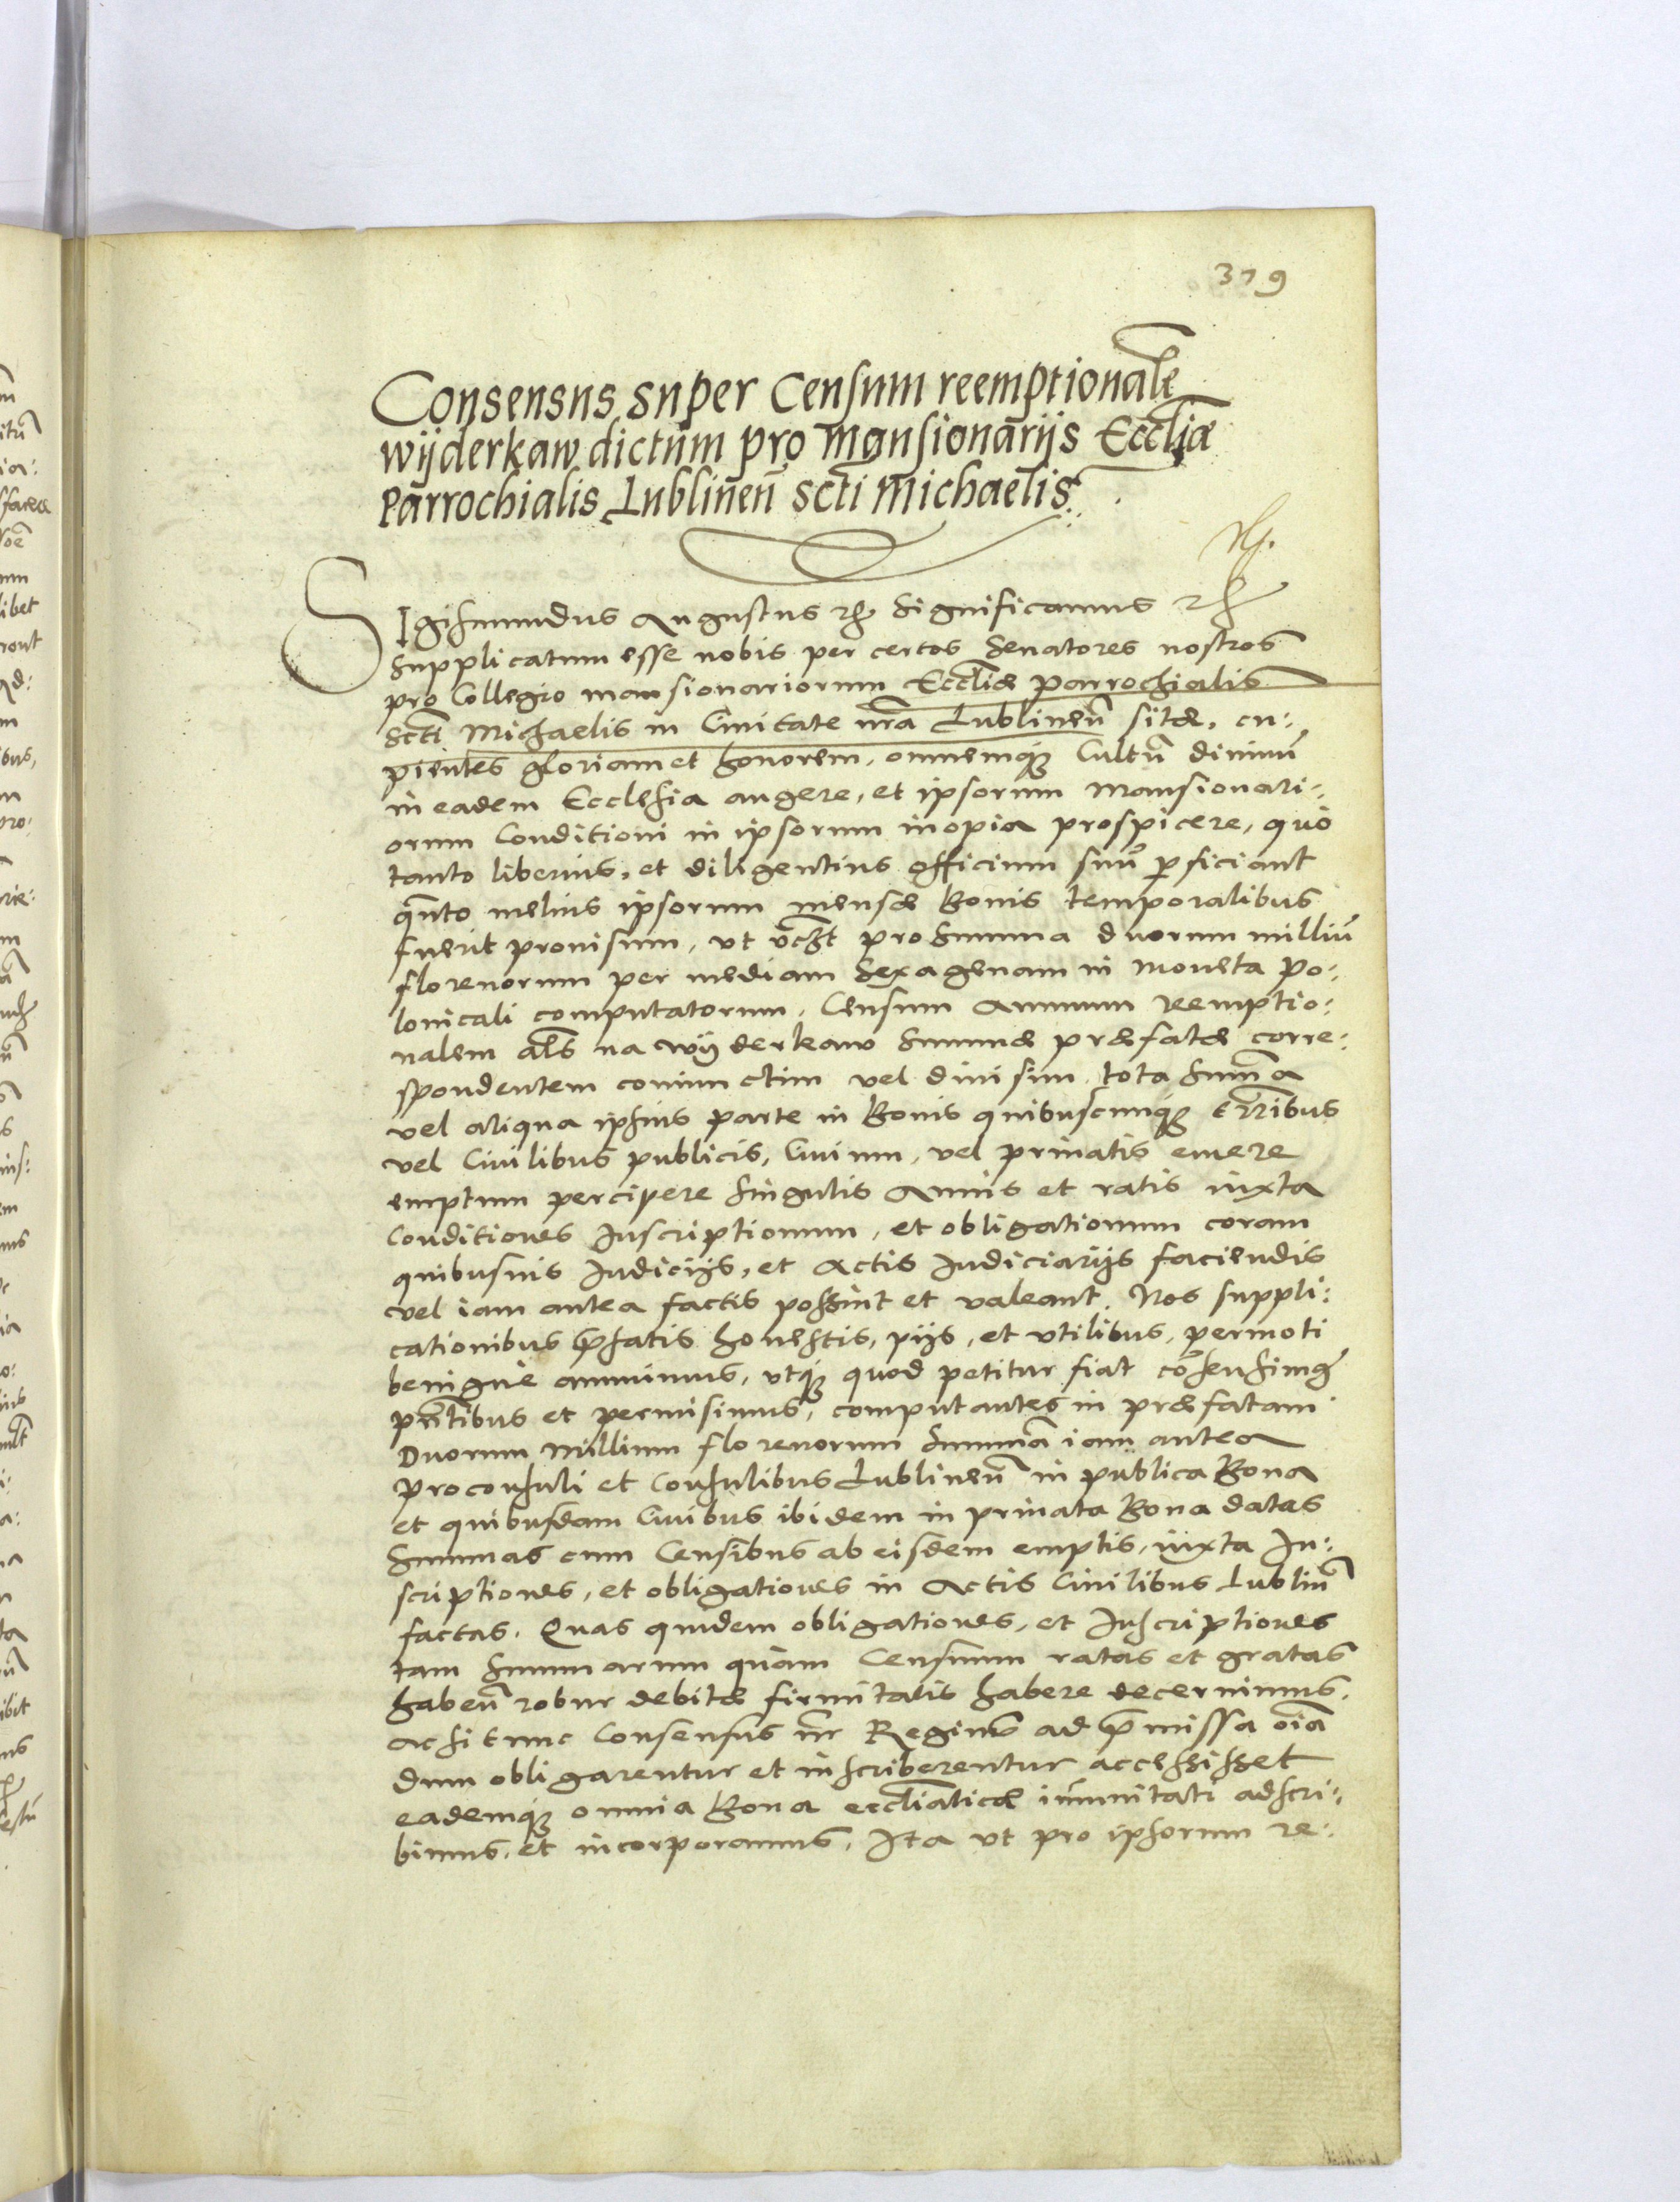 379
Consensus super Censum reemptionalē
wijderkaw dictum pro mansionarijs Eccliæ
Parrochialis Lublineñ Scti Michaelis.
Sigismundus Augustus Significamus
Supplicatum esse nobis per certos Senatores nostros
pro Collegio mansionariorum Eccliæ parrochialis
Scti Michaelis in Civitate nrā Lublineñ sitæ, cu:
pientes gloriam et honorem, omnemq3 Cultū divinū
in eadem Ecclesia augere, et ipsorum Mansionari:
orum Conditioni in ipsorum inopia prospicere, quò
tanto liberius, et diligentius officium suū pficiant
qnto melius ipsorum mensæ Bonis temporalibus
fuerit provisum, ut vcz3t pro Summa duorum milliū
florenorum per mediam Sexagenam in Moneta Po:
lonicali computatorum, Censum Annuum reemptio:
nalem als na wÿderkaw Summæ præfatæ corre:
spondentem coniunctim vel divisim tota Sum̄a
vel aliqua ipsius parte in Bonis quibuscunq3 Trribus
vel Civilibus publicis, Civium, vel privatis emere
emptum percipere singulis Annis et ratis iuxta
Conditiones Inscriptionum, et obligationum coram
quibusvis Iudicijs, et Actis Iudiciarijs faciendis
vel iam antea factis possint et valeant. Nos suppli:
cationibus p̄fatis honestis, pijs, et utilibus, permoti
benignè annuimus, utq3 quod petitur fiat cōsensimq3
pn̄tibus et permisimus, computantes in præfatam
Duorum Millium florenorum Summā iam antea
Proconsuli et Consulibus Lublineñ in publica Bona
et quibusdam Civibus ibidem in privata Bona datas
Summas cum Censibus ab eisdem emptis, iuxta In:
scriptiones, et obligationes in Actis Civilibus Lublin̄
factas. Quas quidem obligationes, et Inscriptiones
tam Summarum quàm Censuum ratas et gratas
habeñ robur debitæ firmitatis habere decernimus.
Ac si tunc Consensus nr̄ Regius ad p̄missa oīa
dum obligarentur et inscriberentur accessisset
eademq3 omnia Bona eccliaticæ im̄unitati adscri:
bimus, et incorporamus. Ita ut pro ipsorum re: